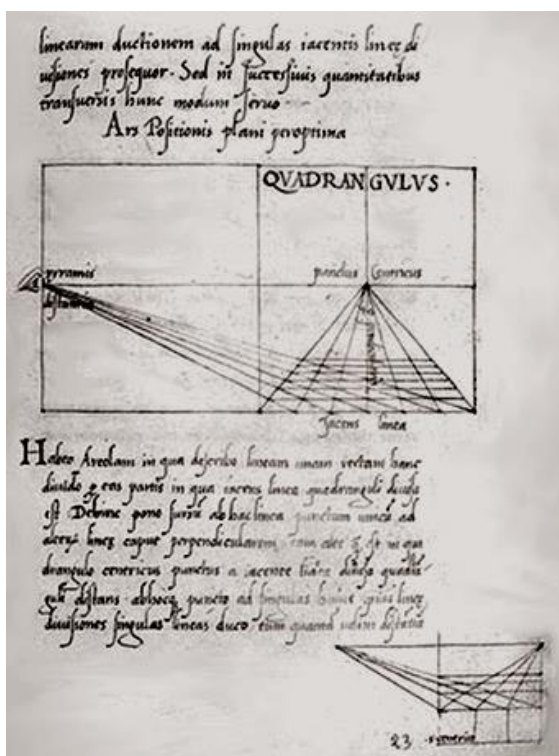 linearum ductionem ad singulas iacentis lineę di
uisiones prosequor. Sed in successiuis quantitatibus
transuersis hunc modum seruo
Ars Positionis plani peroptima
QVADRANGVLVS.
pyramis
punctus Centricus
distantia
Iacens linea
Habeo Areolam in qua describo lineam unam rectam hanc
diuido eas partis in qua iacens linea quadranguli diuisa
est Dehinc pono sursum ab hac linea punctum unicum ad
lineę caput perpendicularem in qua
drangulo centricus punctus a iacente
distans ab hoc puncto ad singulas lineę
diuisiones singulas lineas duco tum quantum distantia
23